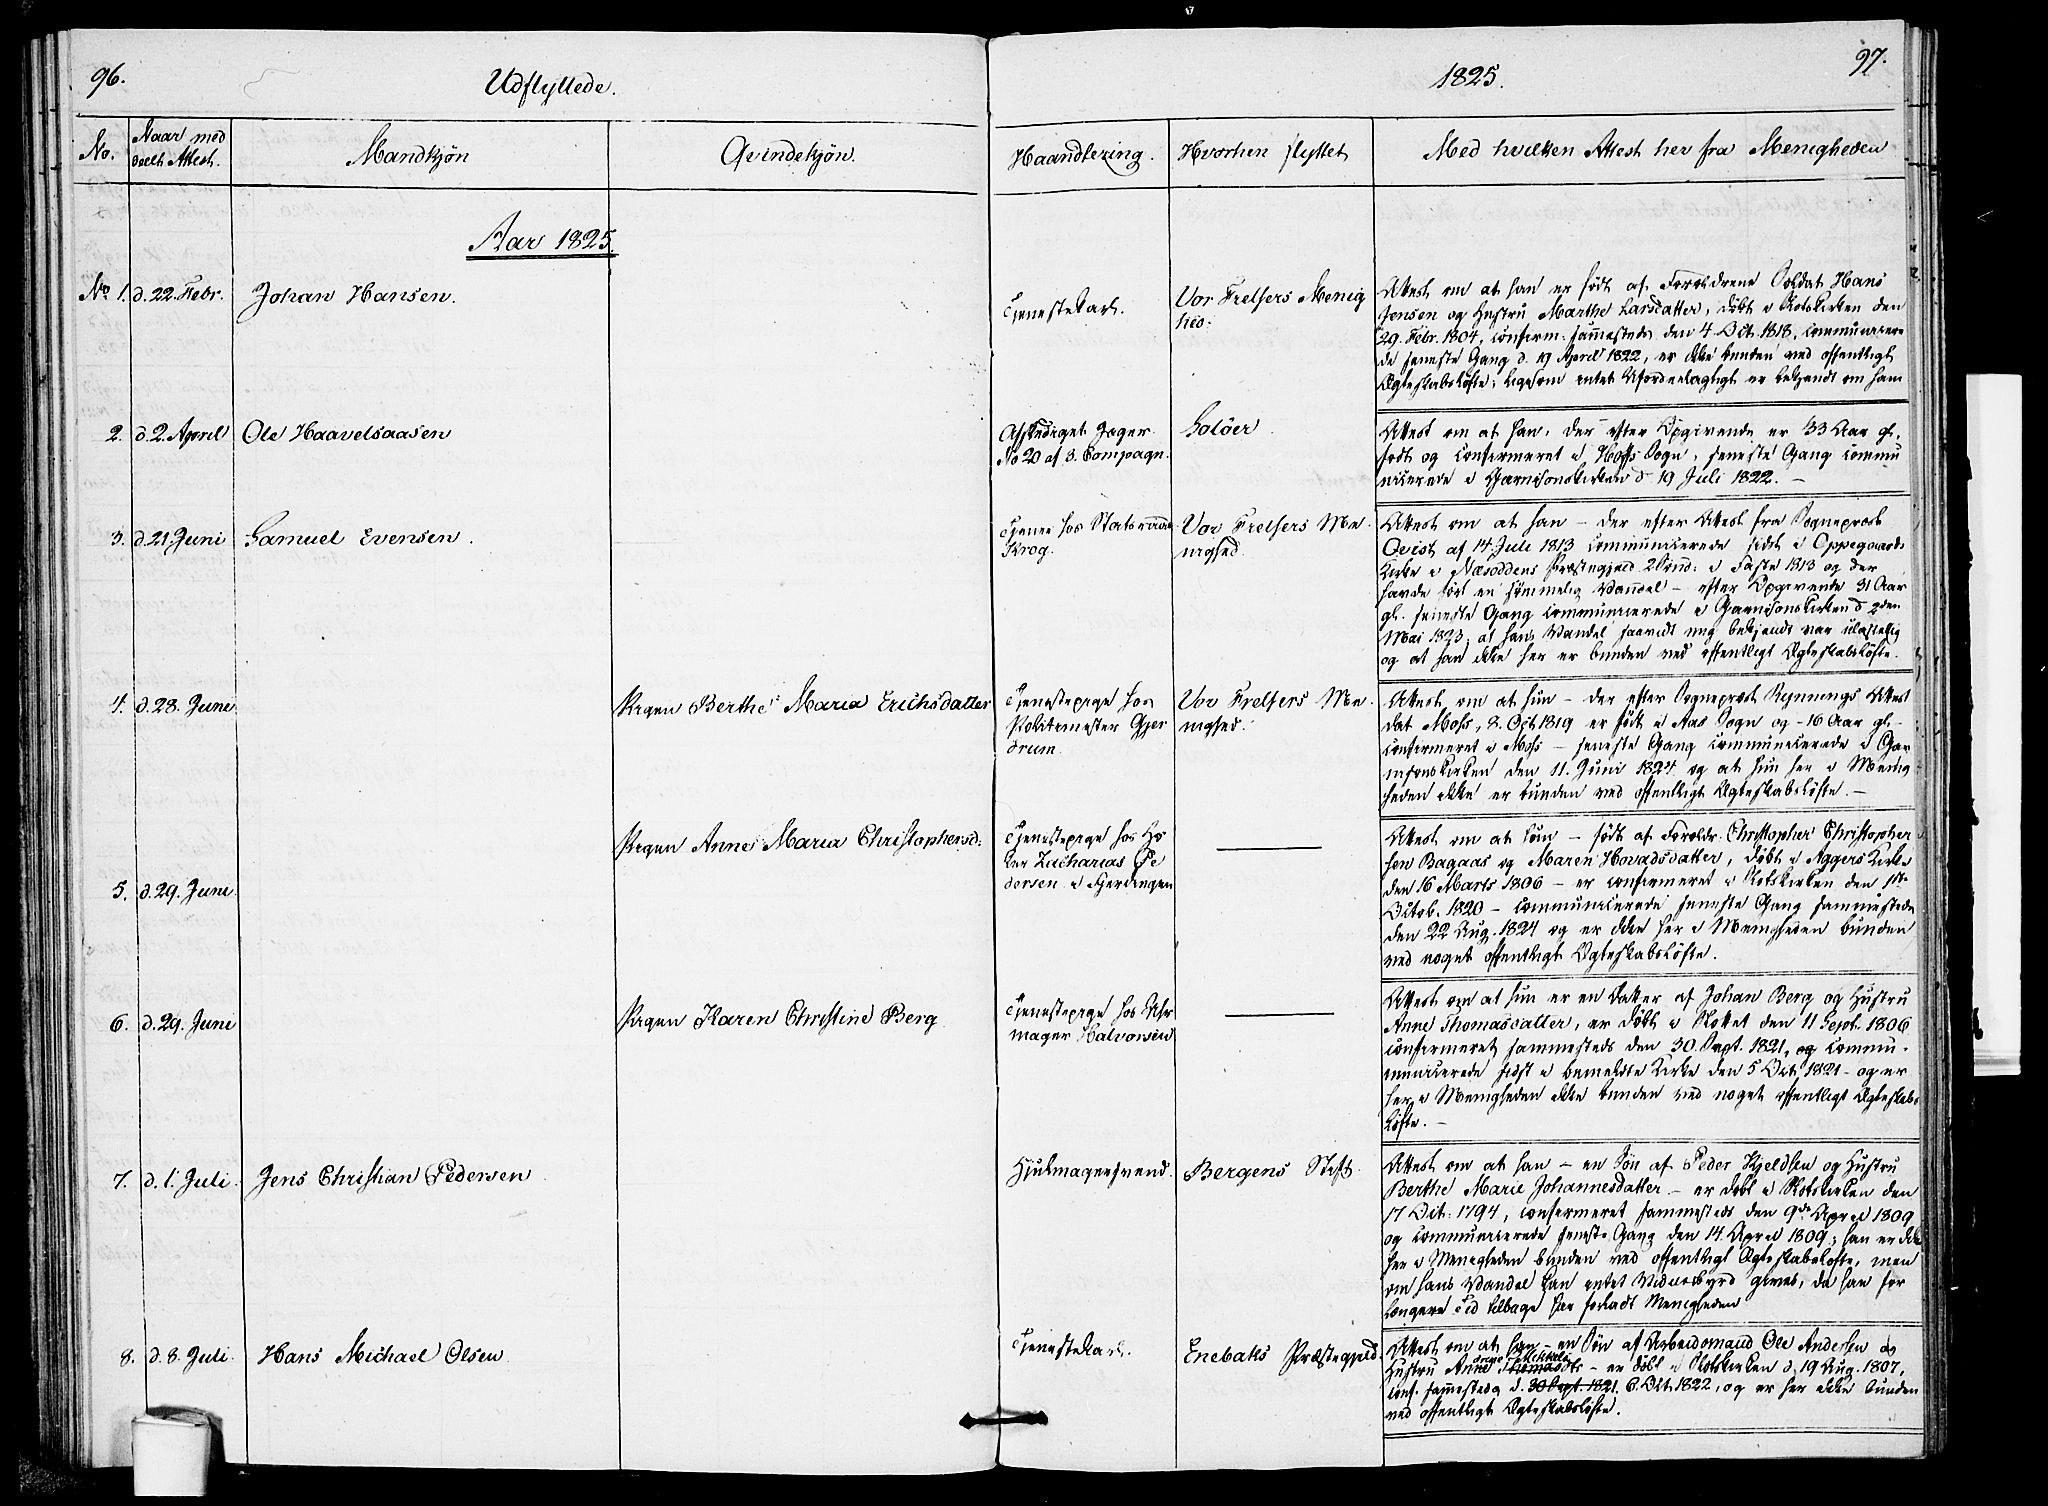 96.
Udflyttede.
No.
Naar med
Attest.
Mandkjøn
Qvindekjøn.
Aar 1825.
No 1. d. 22. Febr. Johan Hansen.
2. d. 2. April Ole Haavelsaasen
3. d. 21. Juni Samuel Evensen.
4. d. 28. Juni Pigen Berthe Maria Erichsdatter
Pigen Anne Maria Christophersd:
5. d. 29. Juni
6. d. 29. Juni Pigen Karen Christine Berg
7. d. 1. Juli. Jens Christian Pedersen
8. d. 8. Juli. Hans Michael Olsen
1825.
97.
Haandtering.
Hvorhen flyttet
Med hvilken Attest her fra Menigheden
Tjenestekarl.
Vor Frelsers Menig
hed.
Attest om at han er født af Forældrene Soldat Hans
Jensen og Hustru Marthe Larsdatter, døbt i Slotskirken den
29. Febr. 1804, confirm: sammesteds den 4. Oct. 1818, communicere
de seneste Gang d. 19 April 1822, er ikke bunden ved offentligt
Ægteskabsløfte; ligesom intet Ufordeelagtigt er bekjendt om ham
Afskediget Jæger
No 20 af 3. Compagn.
Soløer.
Attest om at han, der efter Opgivende er 33 Aar gl.
født og confirmeret i Hoffs Sogn, seneste Gang commu
nicerede i Garnisonskirken d 19 Juli 1822. —
Tjener hos Statsraad
Krog.
Vor Frelsers Me
nighed.
Attest om at han — der efter Attest fra Sognepræst
Qvist af 14 Juli 1813 communicerede sidst i Oppegaards
Kirke i Næsoddens Præstegjeld 2 Sønd: i Faste 1813 og der
havde ført en sømmelig Vandel — efter Opgivende 31 Aar
gl. seneste Gang communicerede i Garnisonskirken d 2den
Mai 1823; at hans Vandel saavidt mig bekjendt var ulastelig
og at han ikke her er bunden ved offentligt Ægteskabsløfte.
Tjenestepige hos
Politimester Gjer
drum.
Vor Frelsers Me
nighed.
Attest om at hun — der efter Sognepræst Attest
dat Moss, 2. Oct 1819 er født i Aas Sogn og — 16 Aar gl —
confirmeret i Moss — seneste Gang communicerede i Gar
nisonskirken den 11. Juni 1824 og at hun her i Menig
heden ikke er bunden ved offentligt Ægteskabsløfte. —
Tjenestepige hos Hø
ker Zacharias Pe
dersen i Fjerdingen
Attest om at hun — født af Forældr. Christopher Christopher
sen Bagaas og Maren Hovadsdatter, døbt i Aggers Kirke
den 16 Marts 1806 — er confirmeret i Slotskirken den 1ste
Octob. 1820 — communicerede seneste Gang sammesteds
den 22 Aug. 1824 og er ikke her i Menigheden bunden
ved noget offentligt Ægteskabsløfte.
Tjenestepige hos Uhr
mager Halvorsen
Attest om at hun er en Datter af Johan Berg og Hustru
Anne Thomasdatter, er døbt i Slottet den 11 Sept. 1806
confirmeret sammesteds den 30. Sept. 1821, og commu-
municerede sidst i bemeldte Kirke den 5 Oct. 1821 — og er
her i Menigheden ikke bunden ved noget offentligt Ægteskabs
løfte. —
Hjulmagersvend.
Bergens Stift.
Attest om at han — en Søn af Peder Kjeldsen og Hustru
Berthe Marie Johannesdatter — er døbt i Slotskirken den
17 Oct: 1794, confirmeret sammesteds den 9de April 1809
og communicerede seneste Gang den 14. April 1809; han er ikke
her i Menigheden bunden ved offentligt Ægteskabsløfte, men
om hans Vandel kan intet Vidnesbyrd gives, da han for
længere Tid tilbage har forladt Menigheden
Tjenestekarl.
Enebaks Præstegjeld.
Attest om at han — en Søn af Arbeidsmand Ole Andersen og
Hustru Anne Thomasdtr — er døbt i Slotskirken d. 19 Aug. 1807,
conf. sammesteds d. 30 Sept. 1821. 6. Oct. 1822, og er her ikke bunden
ved offentligt Ægteskabsløfte.